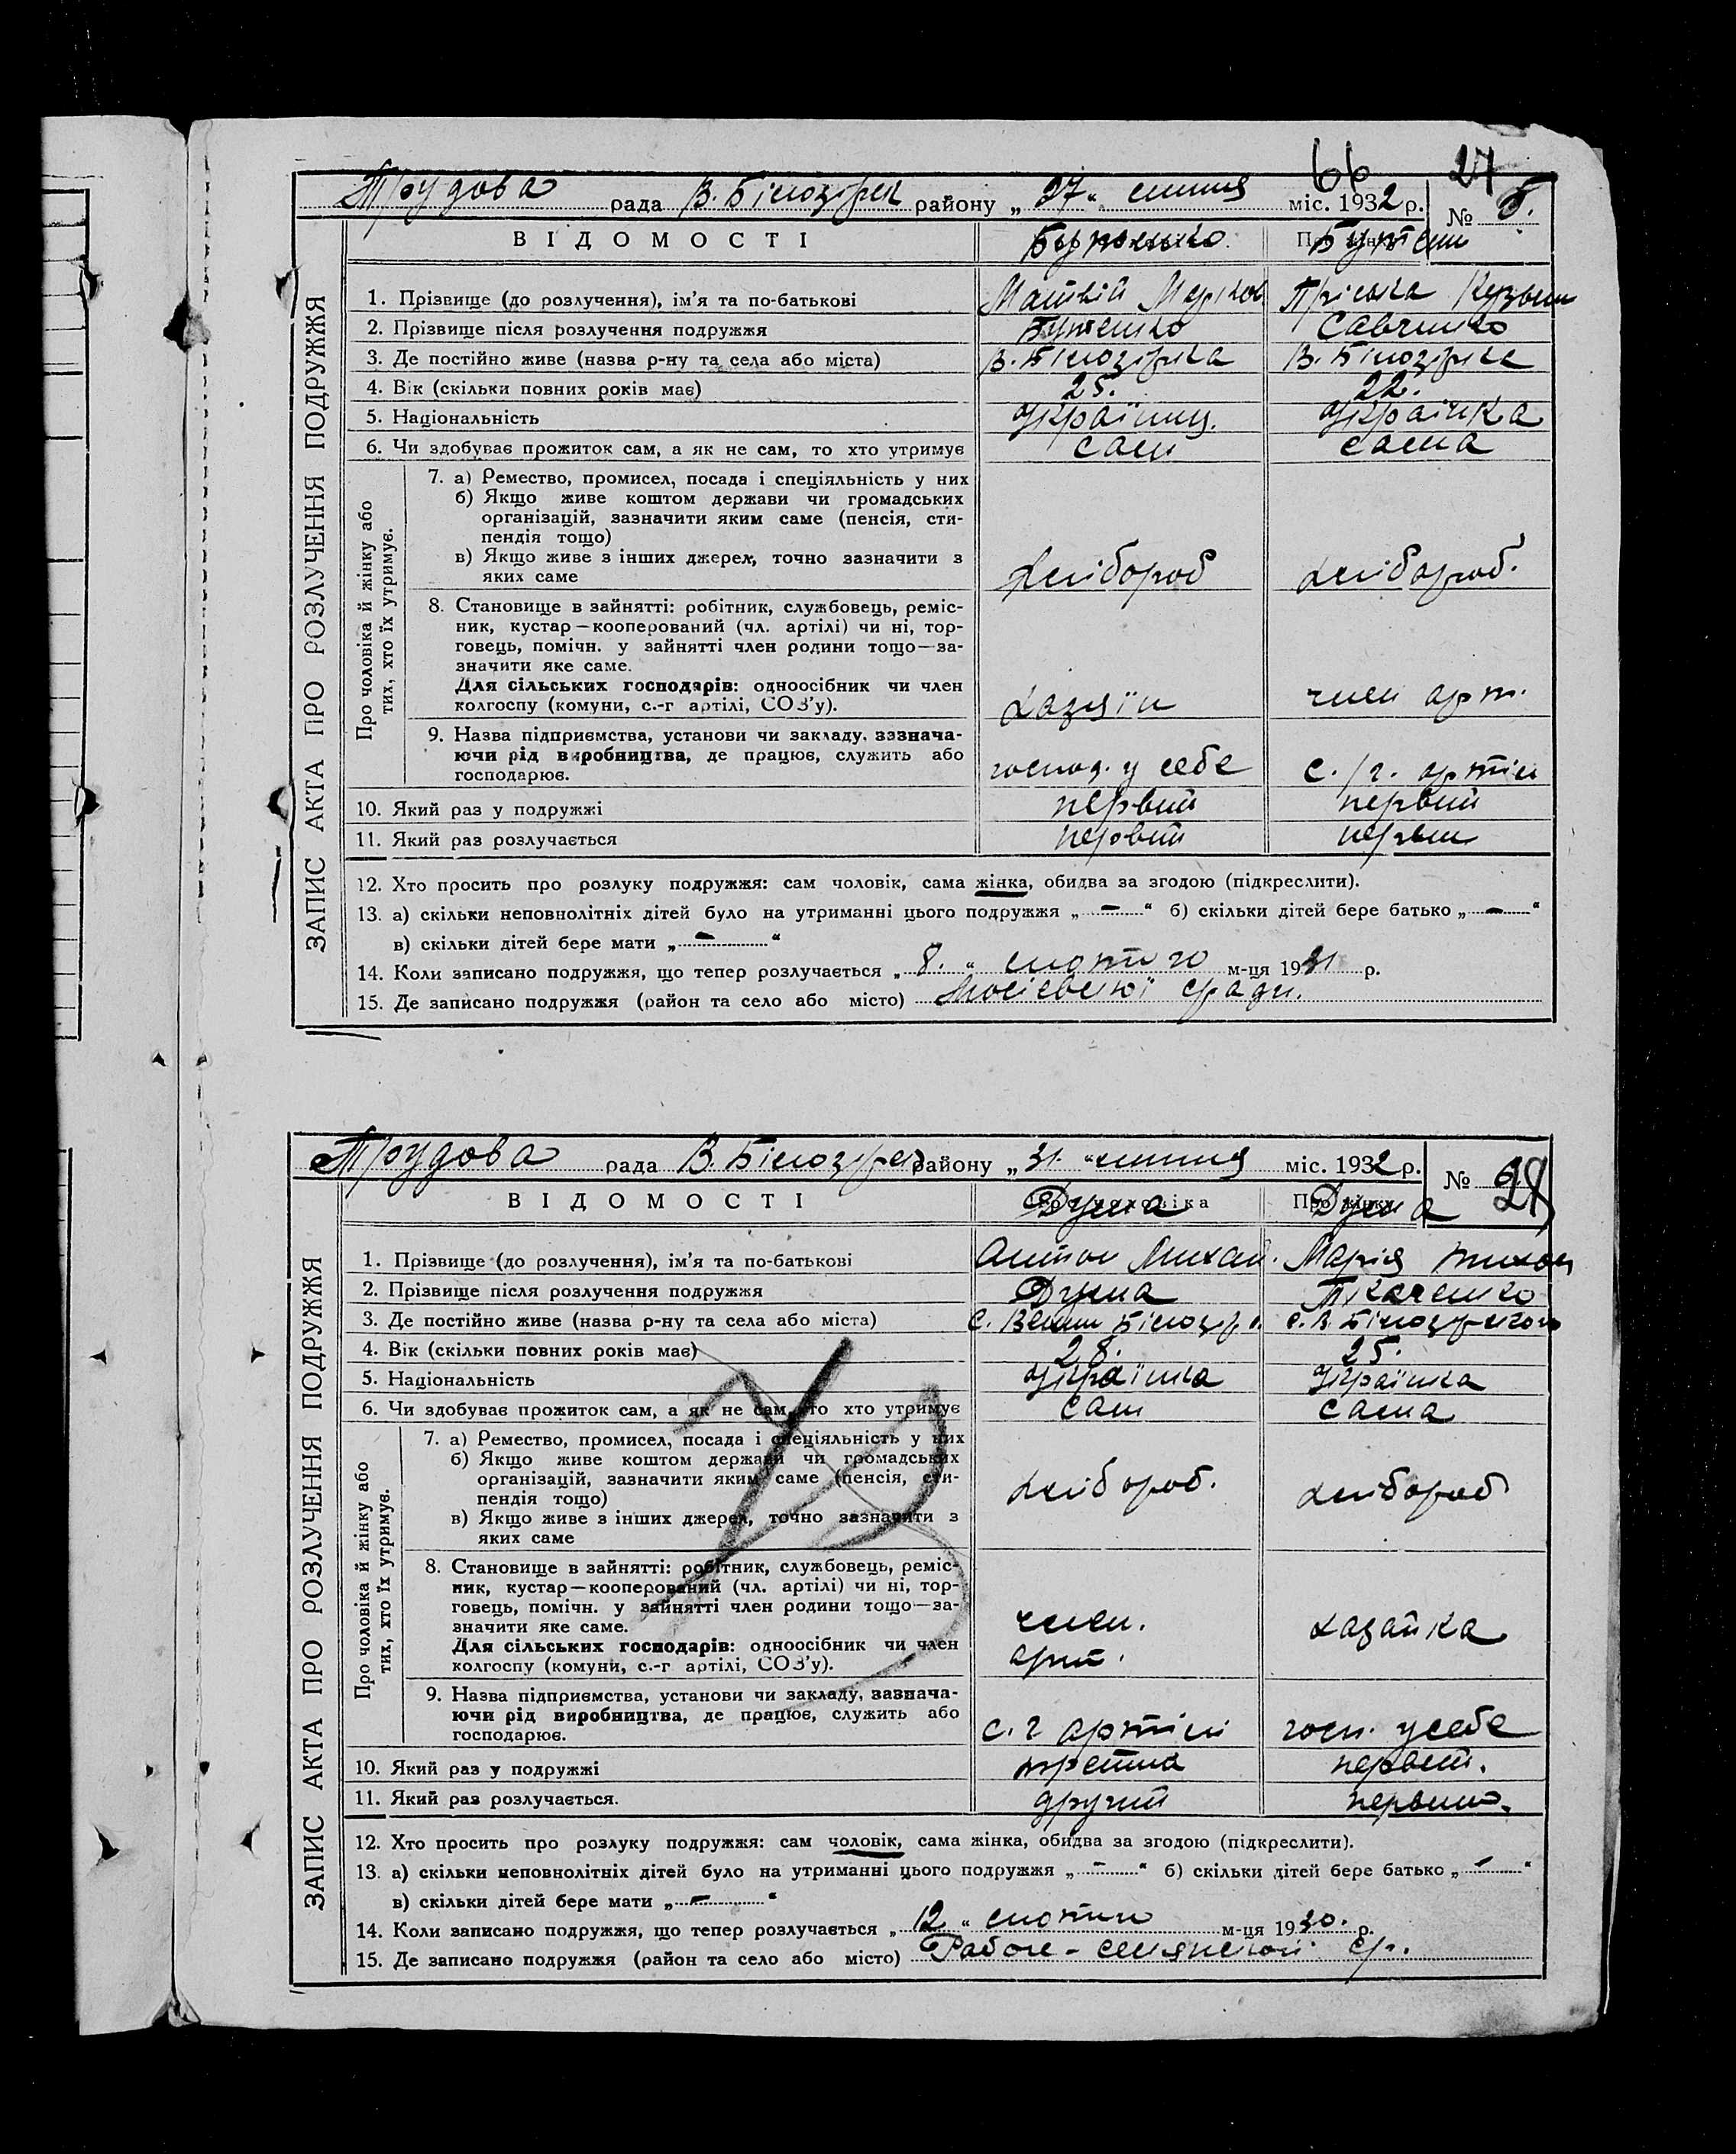 66 27
Трудова рада В. Білозірск району „27“ липня міс. 1932 р. № 5.
ВІДОМОСТІ Бутенко Бутенк
1. Прізвище (до розлучення), ім'я та по-батькові Матвій Марков Пріська Кузьм
2. Прізвище після розлучення подружжя Бутенко Савченко
3. Де постійно живе (назва р-ну та села або міста) В. Білозірка В. Білозірка
4. Вік (скільки повних років має) 25. 22.
5. Національність Українец. Українка
6. Чи здобуває прожиток сам, а як не сам, то хто утримує сам сама
Про чоловіка й жінку або
тих, хто їх утримує.
7. а) Ремество, промисел, посада і спеціяльність у них
б) Якщо живе коштом держави чи громадських
організацій, зазначити яким саме (пенсія, сти-
пендія тощо)
в) Якщо живе з інших джерел, точно зазначити з
яких саме хлібороб хлібороб.
8. Становище в зайнятті: робітник, службовець, реміс-
ник, кустар—кооперований (чл. артілі) чи ні, тор-
говець, помічн. у зайнятті член родини тощо—за-
значити яке саме.
Для сільських господарів: одноосібник чи член
колгоспу (комуни, с.-г артілі, СОЗ'у). хазяїн член арт.
9. Назва підприємства, установи чи закладу, зазнача-
ючи рід виробництва, де працює, служить або
господарює. господ. у себе с./г. артіл
10. Який раз у подружжі первий первий
11. Який раз розлучається первий первий
12. Хто просить про розлуку подружжя: сам чоловік, сама жінка, обидва за згодою (підкреслити).
13. а) скільки неповнолітніх дітей було на утриманні цього подружжя „—“ б) скільки дітей бере батько „—“
в) скільки дітей бере мати „—“
14. Коли записано подружжя, що тепер розлучається „8.“ лютого м-ця 1931 р.
15. Де записано подружжя (район та село або місто) с/ради.
ЗАПИС АКТА ПРО РОЗЛУЧЕННЯ ПОДРУЖЖЯ
Трудова рада В. Білозірск району „31.“ липня міс. 1932 р. № 28
ВІДОМОСТІ Дума Дума
1. Прізвище (до розлучення), ім'я та по-батькові Антон Михай. Марія Тихон
2. Прізвище після розлучення подружжя Дума Ткаченко
3. Де постійно живе (назва р-ну та села або міста) с. Велик Білозір. с. В. Білозірского
4. Вік (скільки повних років має) 28. 25.
5. Національність Українка Українка
6. Чи здобуває прожиток сам, а як не сам, то хто утримує сам сама
Про чоловіка й жінку або
тих, хто їх утримує.
7. а) Ремество, промисел, посада і спеціяльність у них
б) Якщо живе коштом держави чи громадських
організацій, зазначити яким саме (пенсія, сти-
пендія тощо)
в) Якщо живе з інших джерел, точно зазначити з
яких саме хлібороб. хлібороб
8. Становище в зайнятті: робітник, службовець, реміс-
ник, кустар—кооперований (чл. артілі) чи ні, тор-
говець, помічн. у зайнятті член родини тощо—за-
значити яке саме.
Для сільських господарів: одноосібник чи член
колгоспу (комуни, с.-г артілі, СОЗ'у). член. арт. хазайка
9. Назва підприємства, установи чи закладу, зазнача-
ючи рід виробництва, де працює, служить або
господарює. с. г артілі госп. у себе
10. Який раз у подружжі третий первий.
11. Який раз розлучається. другий первий.
12. Хто просить про розлуку подружжя: сам чоловік, сама жінка, обидва за згодою (підкреслити).
13. а) скільки неповнолітніх дітей було на утриманні цього подружжя „—“ б) скільки дітей бере батько „—“
в) скільки дітей бере мати „—“
14. Коли записано подружжя, що тепер розлучається „12“ лютого м-ця 1930. р.
15. Де записано подружжя (район та село або місто) Рабоче-селянской с/р.
ЗАПИС АКТА ПРО РОЗЛУЧЕННЯ ПОДРУЖЖЯ